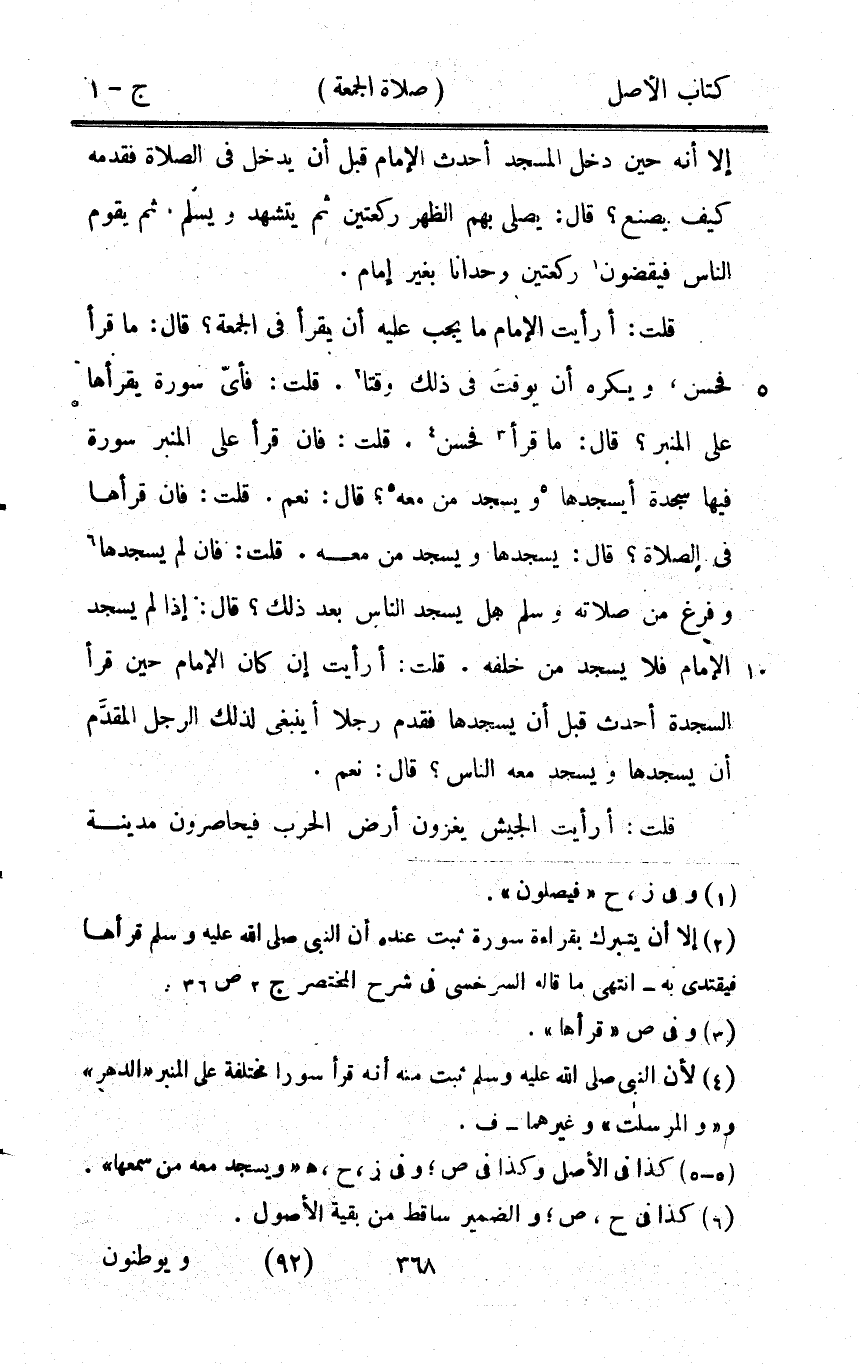 كتاب الأصل (صلاة الجمعة) ج - ١
إلا أنه حين دخل المسجد أحدث الإمام قبل أن يدخل فى الصلاة فقدمه
كيف يصنع؟ قال: يصلى بهم الظهر ركعتين ثم يتشهد و يسلّم، ثم يقوم
الناس فيقضون١ ركعتين وحدانا بغير إمام.
قلت: أ رأيت الإمام ما يجب عليه أن يقرأ فى الجمعة؟ قال: ما قرأ
٥ فحسن، و يكره أن يوقتَ فى ذلك وقتا٢. قلت: فأىّ سورة يقرأها
على المنبر؟ قال: ما قرأ٣ فحسن٤. قلت: فان قرأ على المنبر سورة
فيها سجدة أيسجدها ٥و يسجد من معه٥؟ قال: نعم. قلت: فان قرأها
فى الصلاة؟ قال: يسجدها و يسجد من معه. قلت: فان لم يسجدها٦
و فرغ من صلاته و سلم هل يسجد الناس بعد ذلك؟ قال: إذا لم يسجد
١٠ الإمام فلا يسجد من خلفه. قلت: أ رأيت إن كان الإمام حين قرأ
السجدة أحدث قبل أن يسجدها فقدم رجلا أ ينبغى لذلك الرجل المقدَّم
أن يسجدها و يسجد معه الناس؟ قال: نعم.
قلت: أ رأيت الجيش يغزون أرض الحرب فيحاصرون مدينة
(١) و فى ز، ح «فيصلون».
(٢) إلا أن يتبرك بقراءة سورة ثبت عنده أن النبى صلى الله عليه و سلم قرأها
فيقتدى به ـ انتهى ما قاله السرخسى فى شرح المختصر ج ٢ ص ٣٦.
(٣) و فى ص «قرأها».
(٤) لأن النبى صلى الله عليه وسلم ثبت منه أنه قرأ سورا مختلفة على المنبر «الدهر»
و «و المرسلت» و غيرهما ـ ف.
(٥-٥) كذا فى الأصل وكذا فى ص؛ و فى ز، ح، ه «ويسجد معه من سمعها».
(٦) كذا فى ح، ص؛ و الضمير ساقط من بقية الأصول.
٣٦٨ (٩٢) و يوطنون